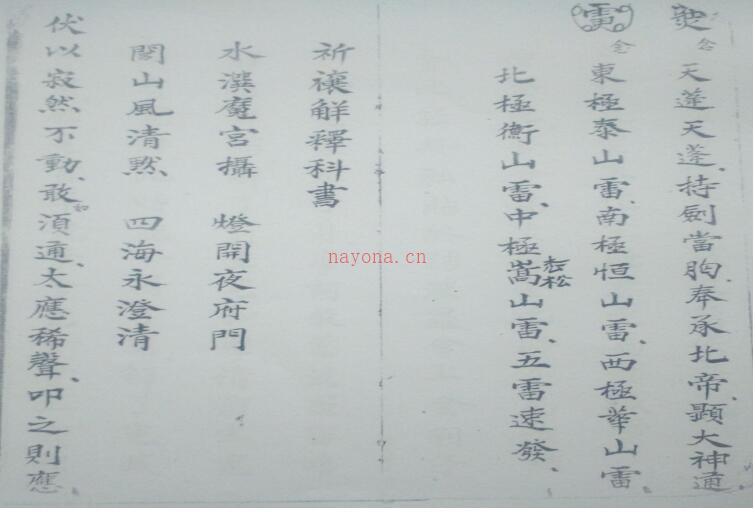 念
天蓬天蓬、持劍當胸、奉承北帝、顕大神通、
雷 念
東極泰山雷、南極恒山雷、西極華山雷
北極衡山雷、中極嵩山雷、五雷速發、
志松
祈禳解釋科書
水潠魔宮攝 燈開夜府門
閣山風清黙 四海永澄清
伏以寂然不動、敢湏通、太應稀聲、叩之則應、
如
nayona.cn